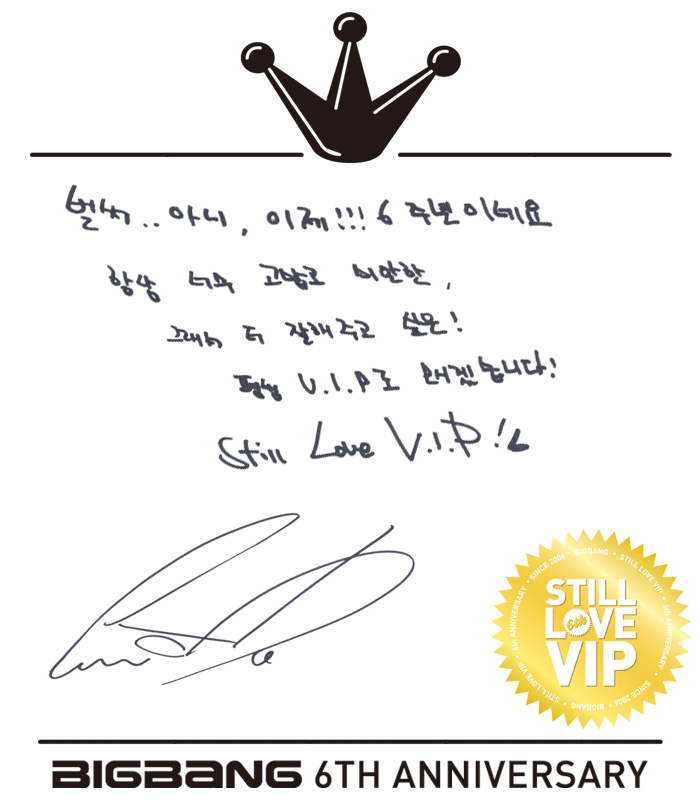 벌써.. 아니, 이제!!! 6주년이네요
항상 너무 고맙고 미안한,
그래서 더 잘해주고 싶은!
평생 V.I.P로 모시겠습니다!
Still Love V.I.P!!
STILL
LOVE
6th
VIP
SINCE 2006 • BIGBANG • STILL LOVE VIP • 6th ANNIVERSARY • SINCE 2006 • BIGBANG • STILL LOVE VIP • 6th ANNIVERSARY
BIGBANG 6TH ANNIVERSARY